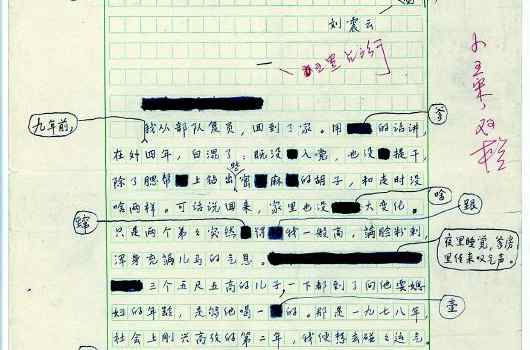 刘震云
九年前，
我从部队复员，回到了家。用
爹
的话讲，
在外四年，白混了：既没入党，也没提干，
除了腮帮上钻出密麻的胡子，和走时没
啥两样。可话说回来，家里也没
啥
大变化。
只是两个弟弟突然
得
我一般高，满脸粉刺，
浑身充满儿马的气息。
夜里睡觉，爹房
里传来叹气声。
三个五尺五高的儿子，一下都到了向他要媳
妇的年龄，是够他喝一
壶
的。那是一九七八年，
社会上刚兴高考的第二年，我便想去碰碰运气